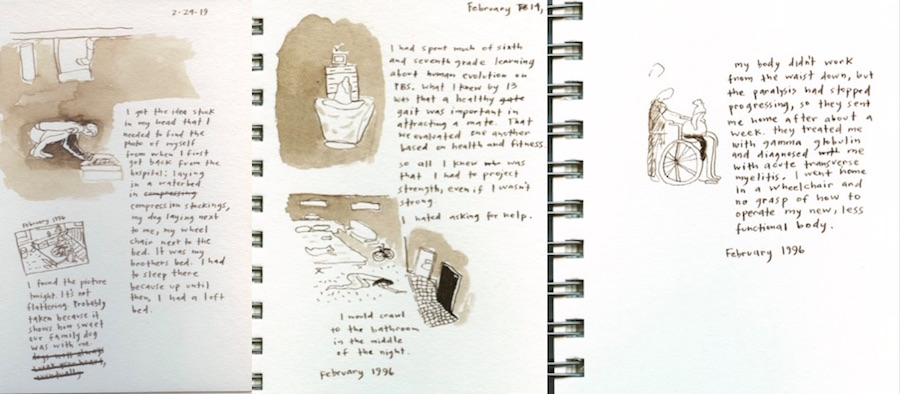 2-24-19
I got the idea stuck
in my head that I
needed to find the
photo of myself
from when I first
got back from the
hospital; laying
in a waterbed
in compressing
compression stockings,
my dog laying next
to me, my wheel
chair next to the
bed. It was my
brothers bed. I had
to sleep there
because up until
then, I had a loft
bed.
February 1996
I found the picture
tonight. It's not
flattering. Probably
taken because it
shows how sweet
our family dog
was with me.
dogs will always
your heart,
eventually
February 19,
I had spent much of sixth
and seventh grade learning
about human evolution on
PBS. what I knew by 13
was that a healthy gate
gait was important in
attracting a mate. That
we evaluated one another
based on health and fitness
so all I knew was
that I had to project
strength, even if I wasn't
strong.
I hated asking for help.
I would crawl
to the bathroom
in the middle
of the night.
February 1996
my body didn't work
from the waist down, but
the paralysis had stopped
progressing, so they sent
me home after about a
week. they treated me
with gamma globulin
and diagnosed me
with acute transverse
myelitis. I went home
in a wheelchair and
no grasp of how to
operate my new, less
functional body.
February 1996